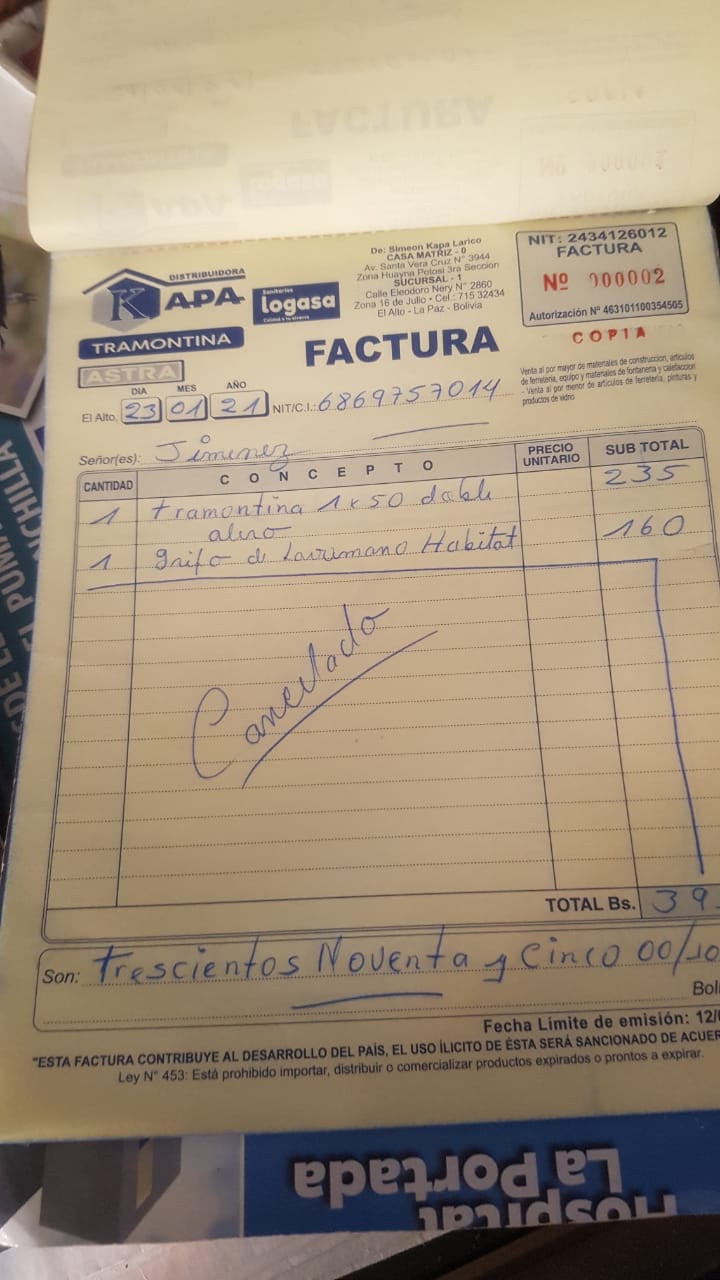 DISTRIBUIDORA
KAPA
TRAMONTINA
ASTRA
Sanitarios
logasa
De: Simeon Kapa Larico
CASA MATRIZ - 0
Av. Santa Vera Cruz N° 3944
Zona Huayna Potosi 3ra Seccion
SUCURSAL - 1
Calle Eleodoro Nery N° 2860
Zona 16 de Julio • Cel.: 715 32434
El Alto - La Paz - Bolivia
NIT: 2434126012
FACTURA
Nº 000002
Autorización Nº 463101100354505
COPIA
FACTURA
Venta al por mayor de materiales de construccion, articulos
de ferreteria, equipo y materiales de fontaneria y calefaccion
- Venta al por menor de articulos de ferreteria, pinturas y
productos de vidrio
DIA MES AÑO
El Alto, 23 01 21 NIT/C.I.: 6869757014
Señor(es): Jimenez
CANTIDAD CONCEPTO PRECIO UNITARIO SUB TOTAL
1 tramontina 1x50 doble 235
1 grifo de Lavamano Habitat 160
Cancelado
TOTAL Bs. 39
Son: Trescientos Noventa y Cinco 00/10
Boli
Fecha Límite de emisión: 12/0
"ESTA FACTURA CONTRIBUYE AL DESARROLLO DEL PAÍS, EL USO ILICITO DE ÉSTA SERÁ SANCIONADO DE ACUER
Ley N° 453: Está prohibido importar, distribuir o comercializar productos expirados o prontos a expirar.
Hospital
La Portada